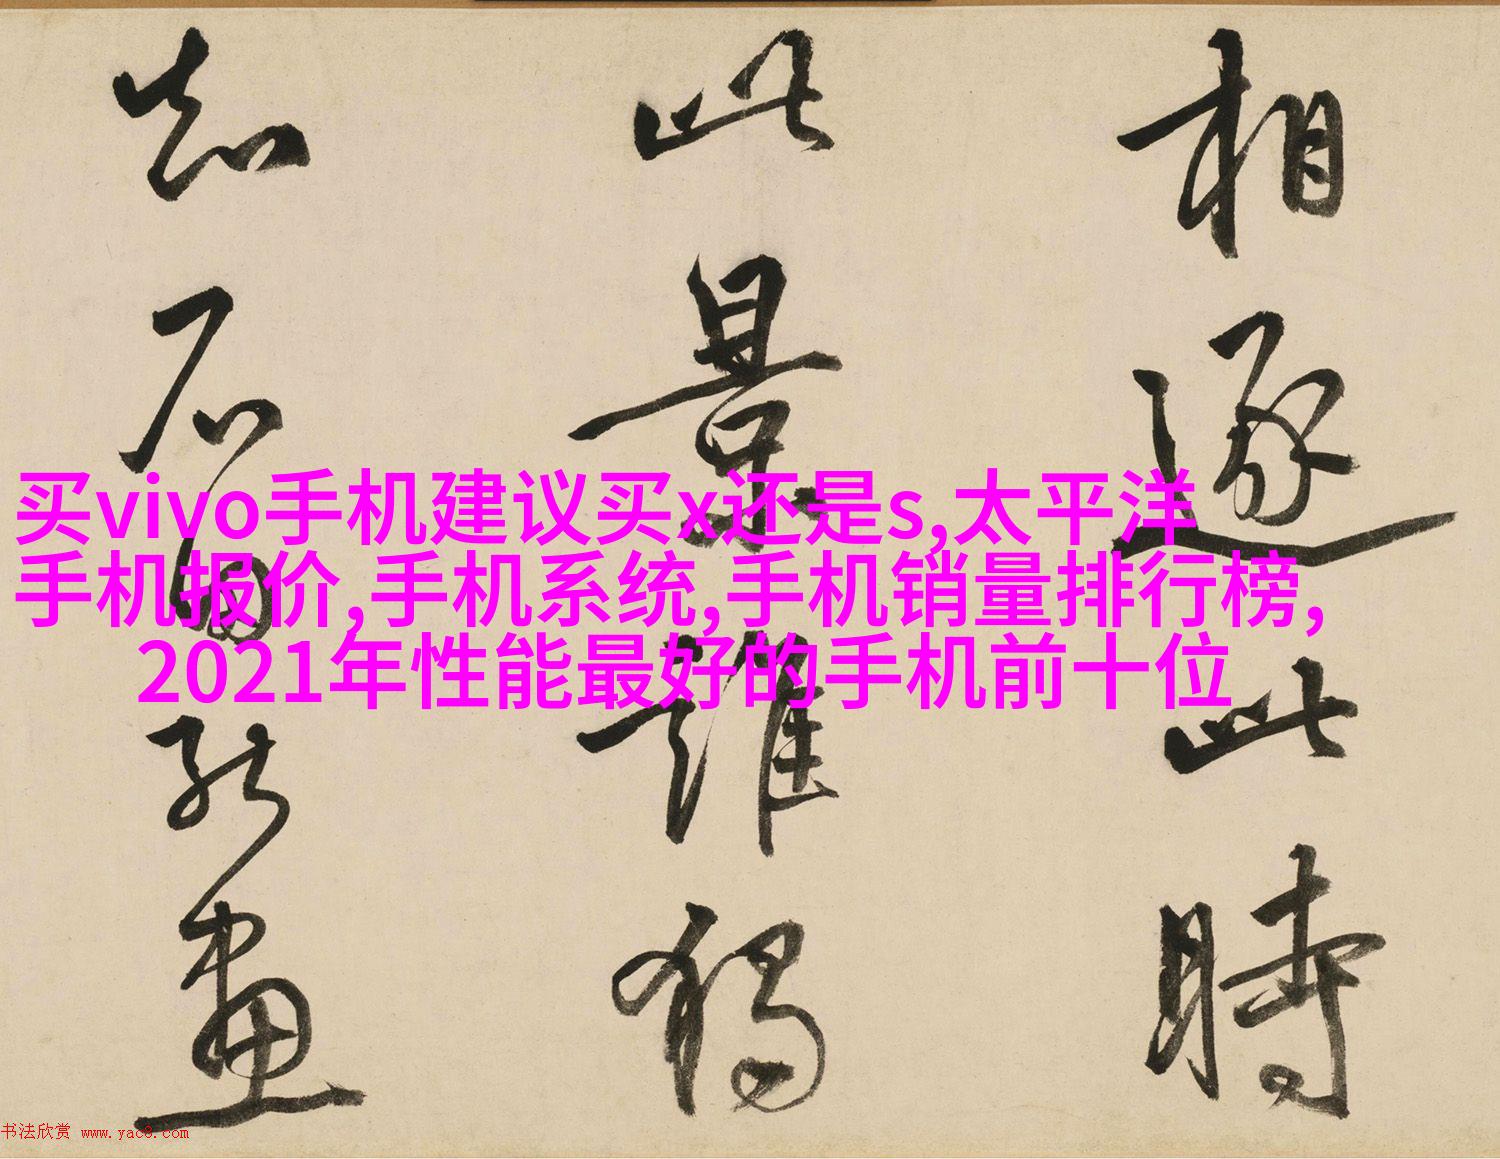 买vivo手机建议买x还是s,太平洋
手机报价,手机系统,手机销量排行榜,
2021年性能最好的手机前十位
相逐此时
此景谁独
知石田能画
书法欣赏 www.yac8.com